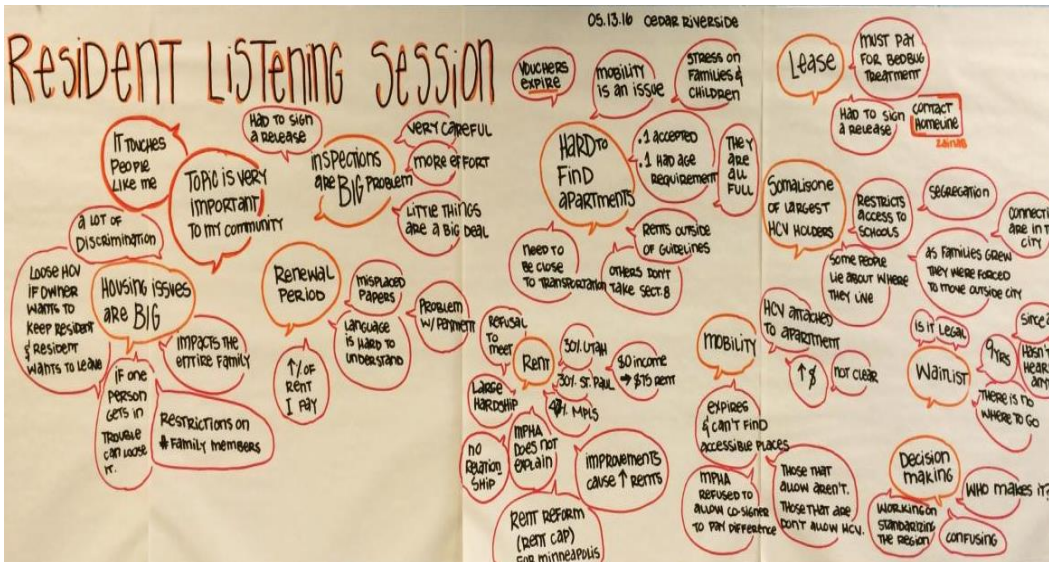 05.13.16 CEDAR RIVERSIDE
RESIDENT LISTENING SESSION
IT TOUCHES
PEOPLE
LIKE ME
TOPIC IS VERY
IMPORTANT
TO MY COMMUNITY
A LOT OF
DISCRIMINATION
HOUSING ISSUES
ARE BIG
LOOSE HCV
IF OWNER
WANTS TO
KEEP RESIDENT
& RESIDENT
WANTS TO LEAVE
IMPACTS THE
ENTIRE FAMILY
IF ONE
PERSON
GETS IN
TROUBLE
CAN LOOSE
IT.
RESTRICTIONS ON
# FAMILY MEMBERS
HAD TO SIGN
A RELEASE
INSPECTIONS
ARE BIG PROBLEM
VERY CAREFUL
MORE EFFORT
LITTLE THINGS
ARE A BIG DEAL
RENEWAL
PERIOD
MISPLACED
PAPERS
LANGUAGE
IS HARD TO
UNDERSTAND
PROBLEM
W/PAYMENT
↑% OF
RENT
I PAY
VOUCHERS
EXPIRE
MOBILITY
IS AN ISSUE
STRESS ON
FAMILIES &
CHILDREN
HARD TO
FIND
APARTMENTS
.1 ACCEPTED
.1 HAD AGE
REQUIREMENT
THEY
ARE
ALL
FULL
RENTS OUTSIDE
OF GUIDELINES
NEED TO
BE CLOSE
TO TRANSPORTATION
OTHERS DON'T
TAKE SECT. 8
REFUSAL
TO
MEET
RENT
30% UTAH
30% ST. PAUL
% MPLS
$0 INCOME
→ $75 RENT
LARGE
HARDSHIP
NO
RELATION
SHIP
MPHA
DOES NOT
EXPLAIN
IMPROVEMENTS
CAUSE ↑ RENTS
RENT REFORM
(RENT CAP)
FOR MINNEAPOLIS
MOBILITY
EXPIRES
& CAN'T FIND
ACCESSIBLE PLACES
MPHA
REFUSED TO
ALLOW CO-SIGNER
TO PAY DIFFERENCE
THOSE THAT
ALLOW AREN'T.
THOSE THAT ARE
DON'T ALLOW HCV.
LEASE
MUST PAY
FOR BEDBUG
TREATMENT
HAD TO SIGN
A RELEASE
CONTACT
HOMELINE
ZAINAB
SOMALIS ONE
OF LARGEST
HCV HOLDERS
RESTRICTS
ACCESS TO
SCHOOLS
SEGREGATION
CONNECTI
ARE IN T
CITY
SOME PEOPLE
LIE ABOUT WHERE
THEY LIVE
AS FAMILIES GREW
THEY WERE FORCED
TO MOVE OUTSIDE CITY
HCV ATTACHED
TO APARTMENT
↑ $
NOT CLEAR
IS IT LEGAL
WAITLIST
9 YRS
SINCE
HASN'T
HEAR
THERE IS NO
WHERE TO GO
DECISION
MAKING
WHO MAKES IT?
WORKING ON
STANDARIZING
THE REGION
CONFUSING